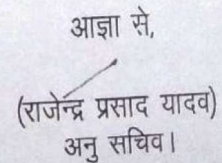 आज्ञा से,
(राजेन्द्र प्रसाद यादव)
अनु सचिव।